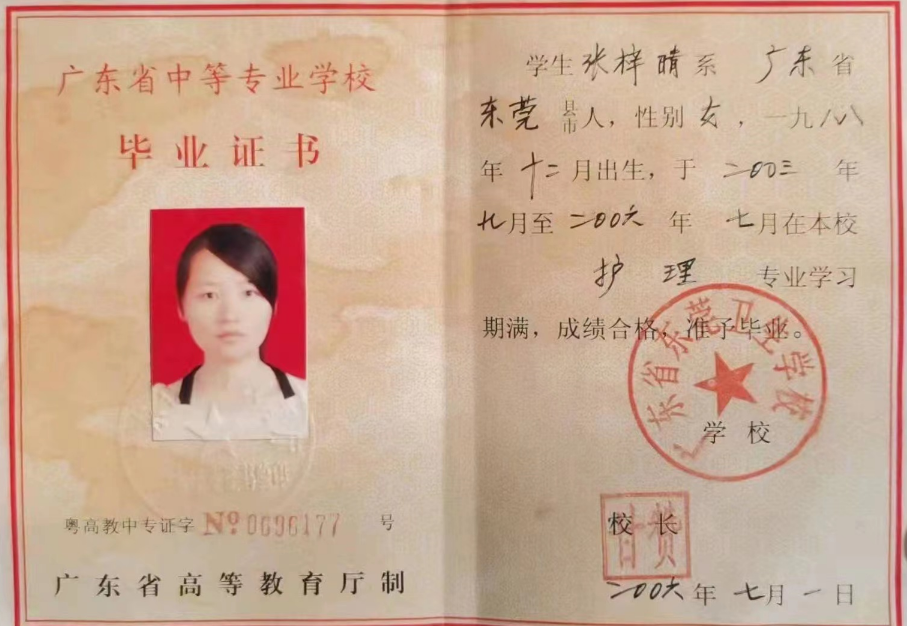 广东省中等专业学校
毕业证书
粤高教中专证字 №0696177 号
广东省高等教育厅制
学生张梓晴系 广东省
东莞 县市人，性别女，一九八八
年十二月出生，于 二00三 年
九月至二00六年 七月在本校
护理 专业学习
期满，成绩合格，准予毕业。
广东省东莞卫生学校
学校
校长
二00六年七月一日